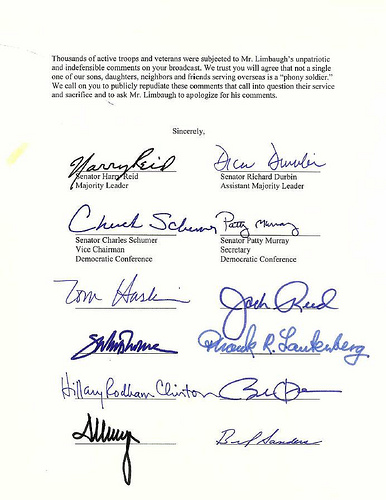 Thousands of active troops and veterans were subjected to Mr. Limbaugh's unpatriotic
and indefensible comments on your broadcast. We trust you will agree that not a single
one of our sons, daughters, neighbors and friends serving overseas is a "phony soldier."
We call on you to publicly repudiate these comments that call into question their service
and sacrifice and to ask Mr. Limbaugh to apologize for his comments.
Sincerely,
Harry Reid
Senator Harry Reid
Majority Leader
Dick Durbin
Senator Richard Durbin
Assistant Majority Leader
Chuck Schumer
Senator Charles Schumer
Vice Chairman
Democratic Conference
Patty Murray
Senator Patty Murray
Secretary
Democratic Conference
Tom Harkin
Jack Reed
Frank R. Lautenberg
Hillary Rodham Clinton
Sanders